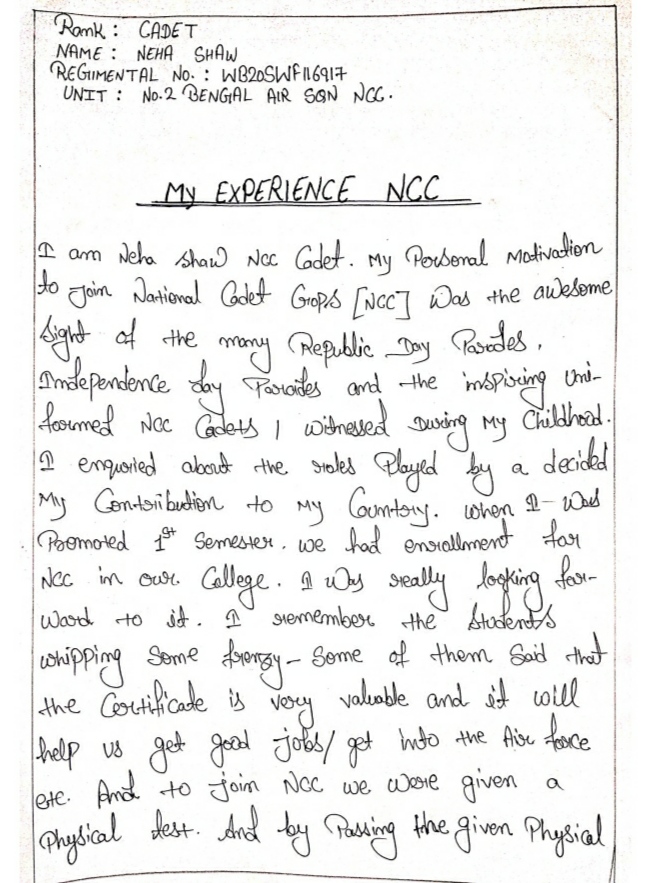 Rank : CADET
NAME : NEHA SHAW
REGIMENTAL No. : WB20SWF116917
UNIT : No.2 BENGAL AIR SQN NCC.
My EXPERIENCE NCC
I am Neha Shaw NCC Cadet. My Personal Motivation
to Join National Cadet Crops [NCC] was the awesome
Sight of the many Republic Day Parades,
Independence day Parades and the inspiring Uni-
formed NCC Cadets I witnessed During My Childhood.
I enquried about the roles Played by a decided
My Contribution to My Country. when I was
Promoted 1st Semester. we had enrollment for
NCC in our College. I was really looking for-
ward to it. I remember the students
whipping some frenzy- some of them said that
the Certificate is very valuable and it will
help us get good jobs/ get into the Air force
etc. And to join NCC we were given a
Physical test. And by Passing the given Physical